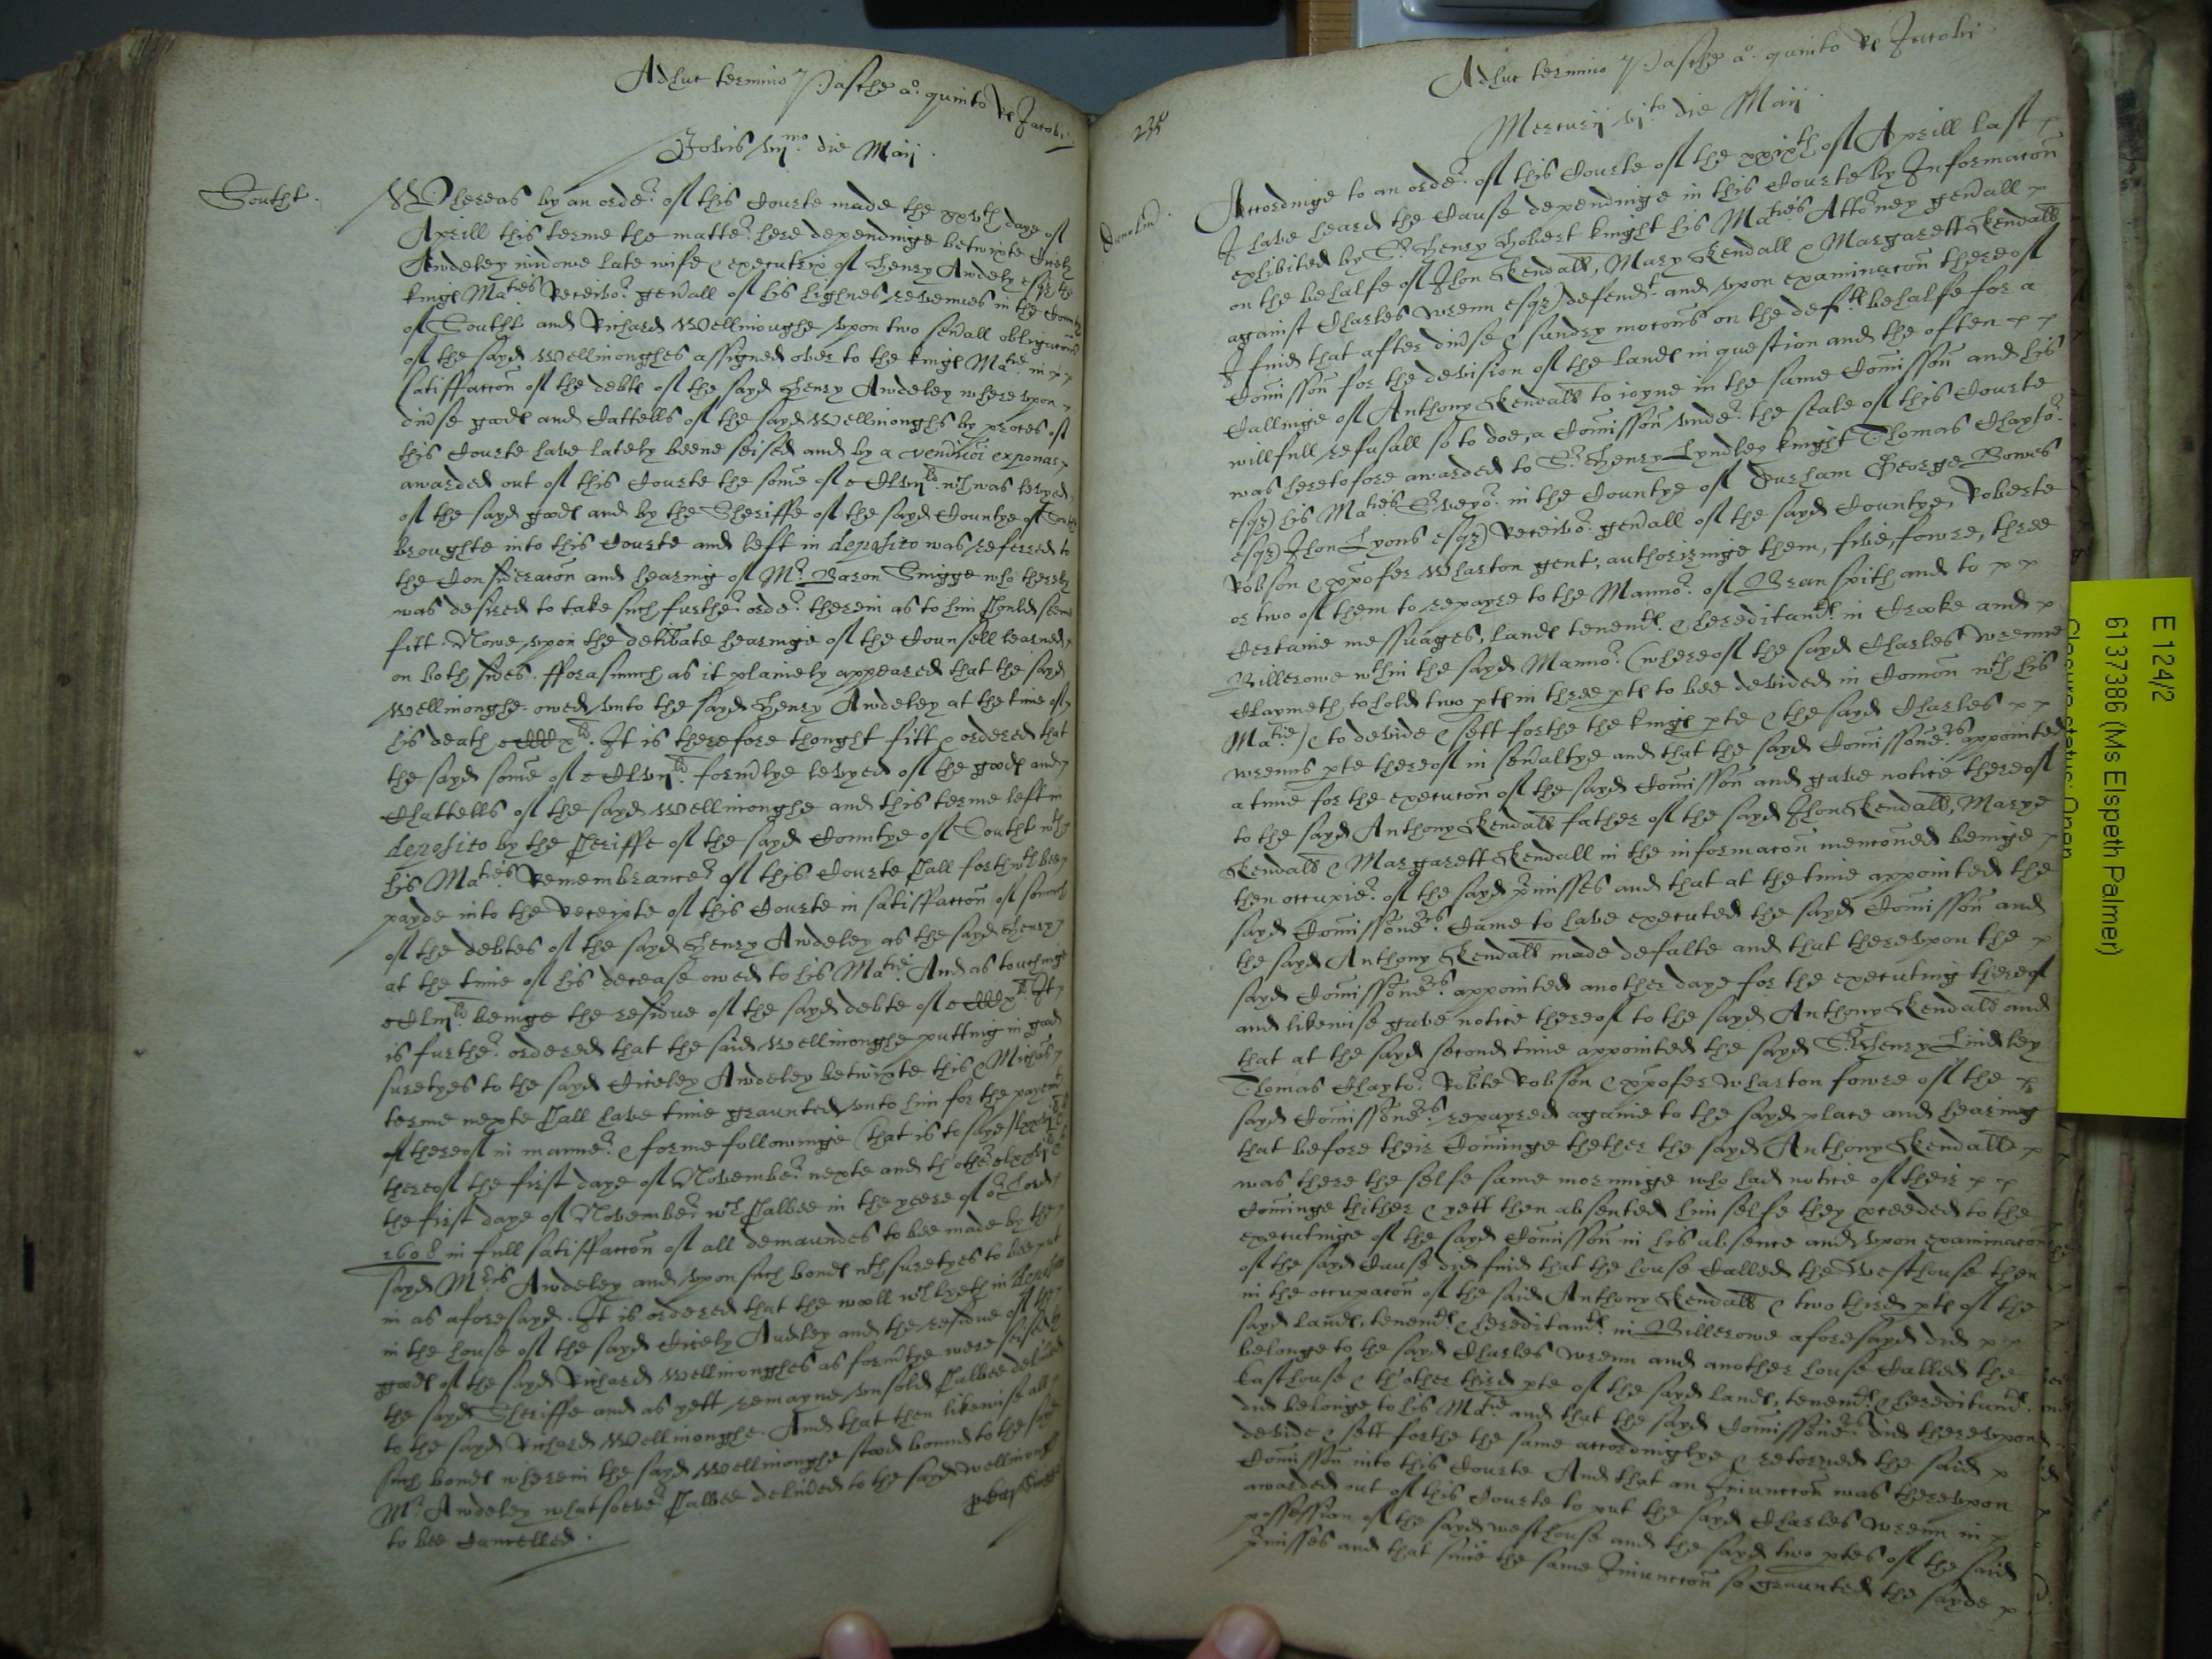 Adhuc termino Pasche a° quinto R Jacobi
Jovis vij mo die Maij
Southt
Whereas by an order of this Courte made the xxvth daye of
Aprill this terme the matter here dependinge betwixte Cicely
Awdeley widowe late wife & executrix of Henry Awdeley esqr the
kings Maties Receivor gen'all of his highnes revenues in the Countye
of Southt and Richard Wellinoughe upon two sev'all obligacons
of the sayd Wellinoughes assigned over to the kings Matie in
satisffaccon of the debts of the sayd Henry Awdeley whereupon
div'se goods and Cattells of the sayd Wellinoughs by proces of
this Courte have lately beene seised and by a venditioi exponas
awarded out of this Courte the some of wch was levyed
of the sayd goods and by the Sheriffe of the sayd Countye of South
broughte into this Courte and left in deposito was referred to
the Consideracon and hearing of Mr Baron Snigge who thereby
was desired to take such further order therein as to him should seeme
fitt. Nowe upon the delib'ate hearinge of the Counsell learned
on both sides. fforasmuch as it plainely appeared that the sayd
Wellinoughe owed unto the sayd Henry Awdeley at the time of
his death It is therefore thought fitt & ordered that
the sayd some of form'lye levyed of the goods and
Chattells of the sayd Wellinoughe and this terme left in
deposito by the sheriffe of the sayd Countye of Southt wth
his Maties Remembrancer of this Courte shall forthwth bee
payde into the Receipte of this Courte in satisffaccon of somuch
of the debtes of the sayd Henry Awdeley as the sayd Henry
at the time of his decease owed to his Matie. And as touchinge
beinge the residue of the sayd debte of It
is further ordered that the said Wellinoughe putting in good
suretyes to the sayd Ciceley Awdeley betwixte this & Michas
terme nexte shall have time graunted unto him for the payemt
thereof in manner & forme followinge (that is to saye)
thereof the first daye of November nexte and th'other
the first daye of November wch shalbee in the yeere of or Lord
1608 in full satisffaccon of all demaundes to bee made by the
sayd Mris Awdeley and upon such bonds wth suretyes to bee put
in as aforesayd. It is ordered that the wooll wch lyeth in deposito
in the house of the sayd Cicely Audley and the residue of the
goods of the sayd Richard Wellinoughes as form'lye were seised by
the sayd Sheriffe and as yett remayne unsold shalbee deliv'ed
to the sayd Richard Wellinoughe. And that then likewise all
such bonds wherein the sayd Wellinoughe stood bound to the sayd
Mr Awdeley whatsoever shalbee deliv'ed to the sayd Wellinough
to bee Cancelled.
Snigge
235
Adhuc termino Pasche a° quinto R Jacobi
Mercurij vj to die Maij
Dunelm
Accordinge to an order of this Courte of the xxixth of Aprill last
I have heard the Cause dependinge in this Courte by Informacon
exhibited by Sr Henry Hobert knight his Maties Attorney gen'all
on the behalfe of Jhon Kendall, Mary Kendall & Margarett Kendall
against Charles Wrenn esqr defendt and upon examinacon thereof
I find that after div'se & sundry mocons on the defts behalfe for a
Comisson for the devision of the lands in question and the often
Callinge of Anthony Kendall to ioyne in the same Comisson and his
willfull refusall so to doe, a Comisson under the seale of this Courte
was heretofore awarded to Sr Henry Lyndley knight Thomas Chaytor
esqr his Maties S'veyor in the Countye of Durham George Bowes
esqr Jhon Lyons esqr Receivor gen'all of the sayd Countye, Roberte
Robson & xpofer Wharton gent, authorizinge them, five, fowre, three
or two of them to repayre to the Mannor of Branspith and to
Certaine messuages, lands tenemts & hereditamts in Crooke and
Billerowe wthin the sayd Mannor (whereof the sayd Charles Wrenne
Claymeth to hold two pts in three pts to bee devided in Comon wth his
Matie) & to devide & sett forthe the kings pte & the sayd Charles
Wrenns pte thereof in sev'altye and that the sayd Comissoners appointed
a time for the execucon of the sayd Comisson and gave notice thereof
to the sayd Anthony Kendall father of the sayd Jhon Kendall, Marye
Kendall & Margarett Kendall in the informacon mencioned beinge
then occupier of the sayd p'misses and that at the time appointed the
sayd Comissoners Came to have executed the sayd Comisson and
the sayd Anthony Kendall made defalte and that thereupon the
sayd Comissoners appointed another daye for the executing thereof
and likewise gave notice thereof to the sayd Anthony Kendall and
that at the sayd second time appointed the sayd Sr Henry Lindley
Thomas Chaytor Rob'te Robson & xpofer Wharton fowre of the
sayd Comissoners repayred againe to the sayd place and hearing
that before their Cominge thether the sayd Anthony Kendall
was there the selfe same morninge who had notice of their
Cominge thither & yett then absented him selfe they p'ceeded to the
executinge of the sayd Comisson in his absence and upon examinacon
of the sayd Cause did find that the house Called the Westhouse then
in the occupacon of the said Anthony Kendall & two third pts of the
sayd lands, tenemts & hereditamts in Billerowe aforesayd did
belonge to the sayd Charles Wrenn and another house Called the
Easthouse & th'other third pte of the sayd lands, tenemts & hereditamts
did belonge to his Matie and that the sayd Comissoners did thereupon
devide & sett forthe the same accordinglye & retorned the said
Comisson into this Courte And that an Iniunccon was thereupon
awarded out of this Courte to put the sayd Charles Wrenn in
possession of the sayd westhouse and the sayd two ptes of the said
p'misses and that since the same Iniunccon so graunted the sayde
E 124/2
6137386 (Ms Elspeth Palmer)
Closure status: Open